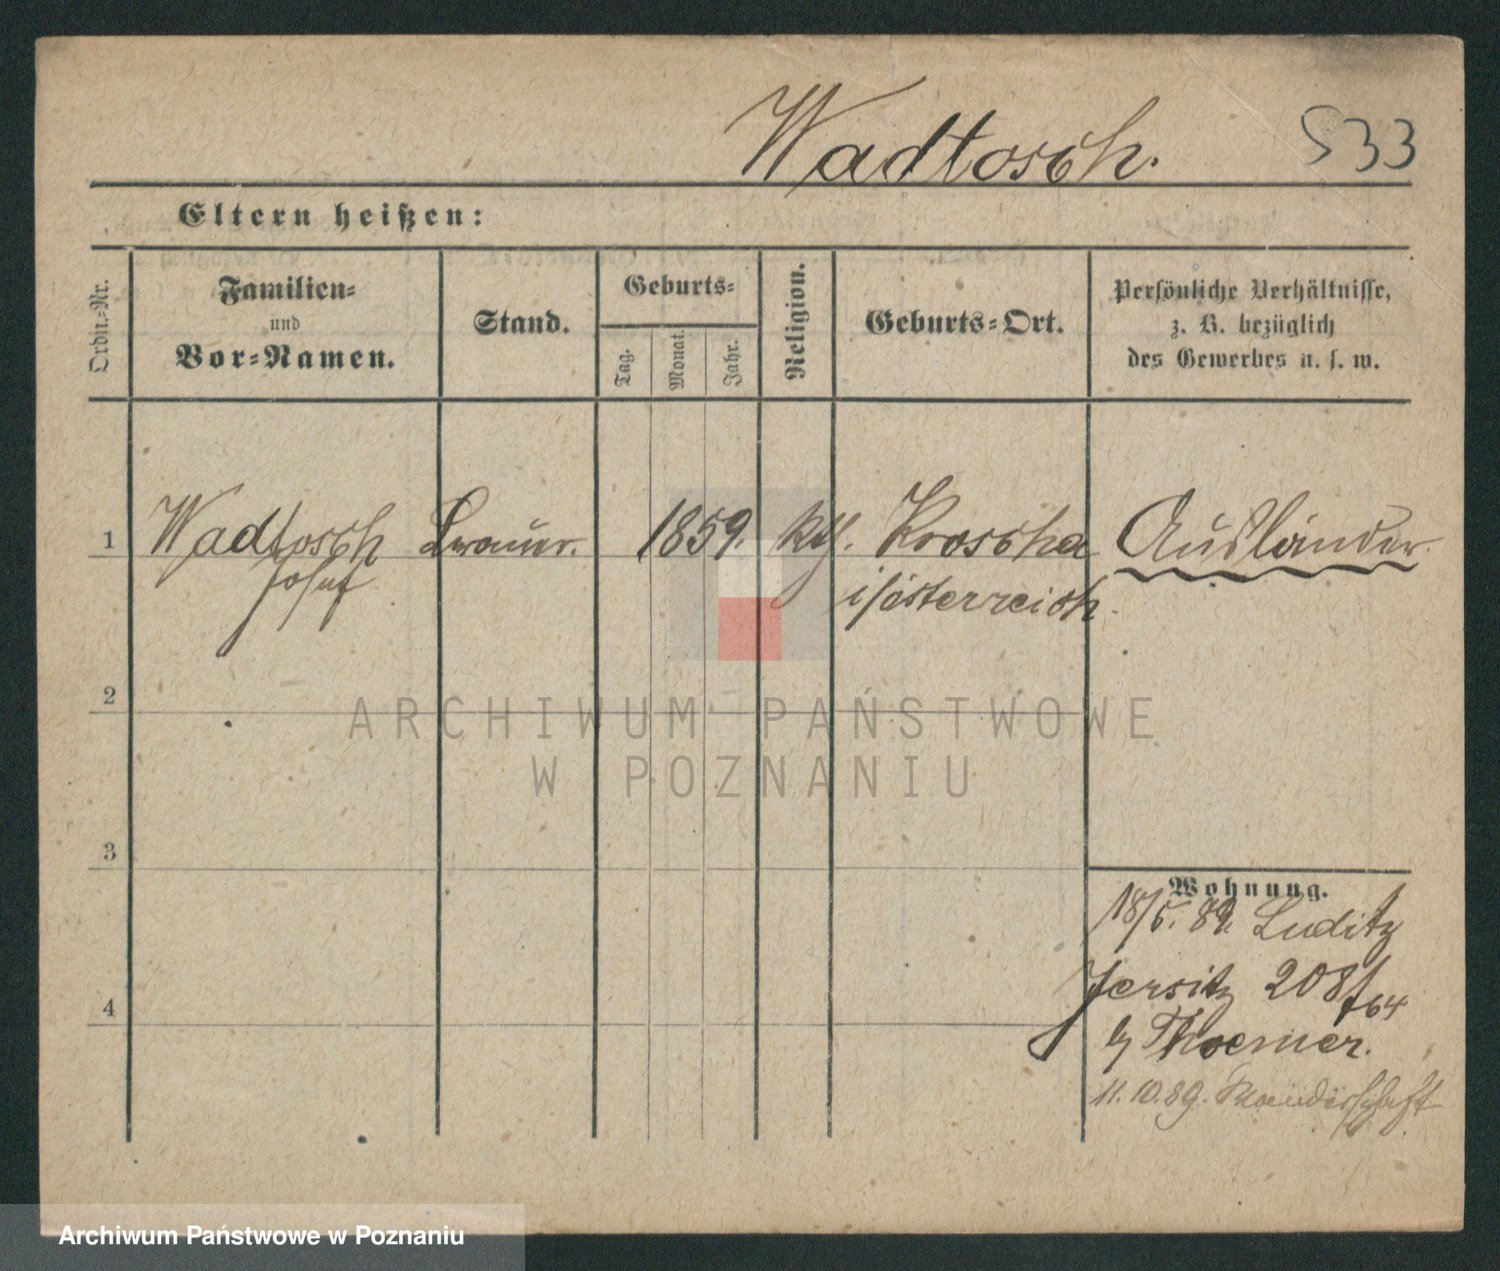 Wadtosch. 533
Eltern heißen:
Ordn.-Nr.
Familien-
und
Vor-Namen.
Stand.
Geburts-
Tag.
Monat.
Jahr.
Religion.
Geburts-Ort.
Persönliche Verhältnisse,
z. B. bezüglich
des Gewerbes u. s. w.
1 Wadtosch Brauer. 1859. kth. Kroscha Ausländer.
Josef i/österreich.
2
3
4
Wohnung.
18/5. 89. Luditz
Jersitz 208/764
b/ Thoemer.
11. 10. 89.
ARCHIWUM PAŃSTWOWE
W POZNANIU
Archiwum Państwowe w Poznaniu